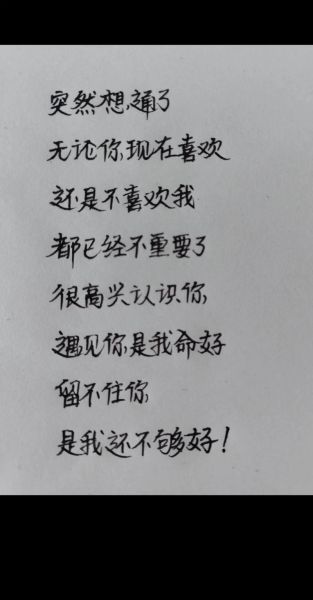 突然想通了
无论你现在喜欢
还是不喜欢我
都已经不重要了
很高兴认识你
遇见你是我命好
留不住你
是我还不够好！